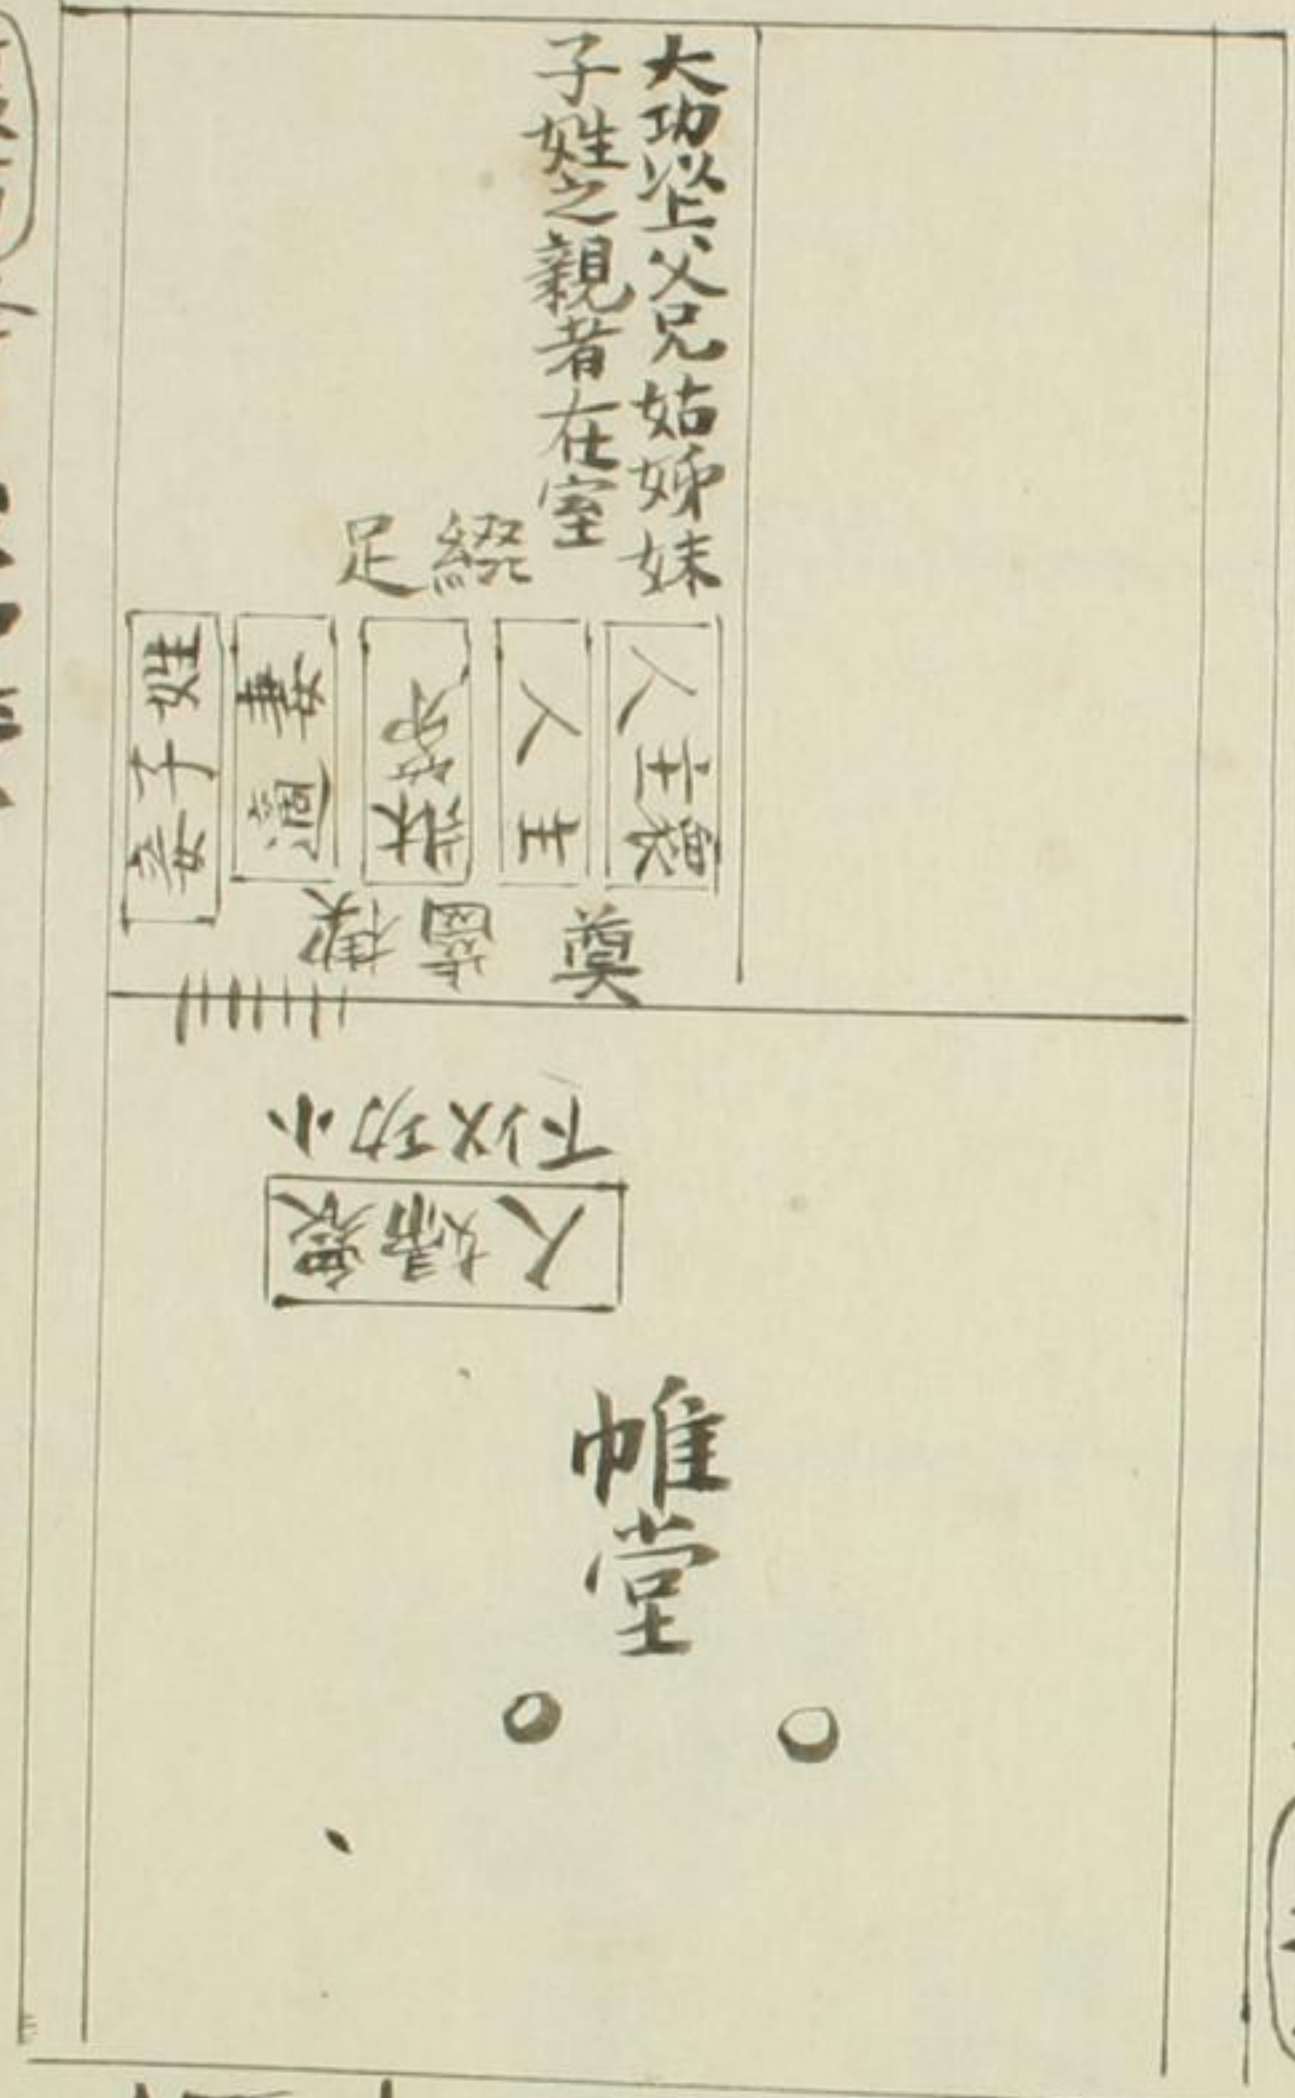 大功以上父兄姑姊妹
子姓之親者在室
綴足
衆主人
主人
牀笫
適妻
妾子姓
奠
楔齒
小功以下
衆婦人
帷堂